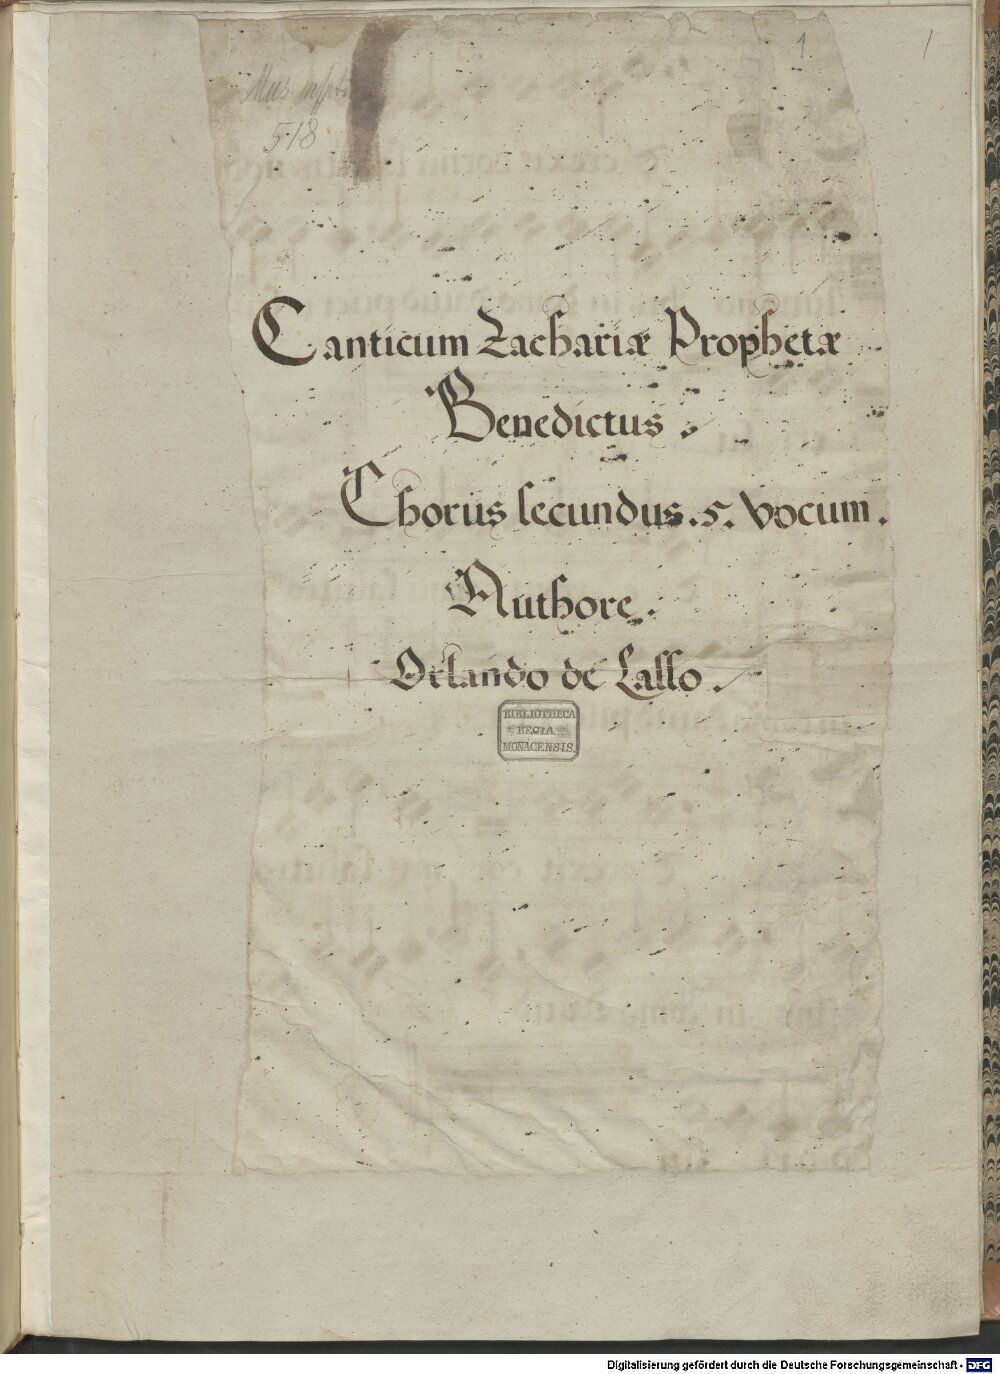 1
1
Mus. mss.
518
Canticum Zachariæ Prophetæ
Benedictus.
Chorus secundus. 5. vocum.
Authore.
Orlando de Lasso.
BIBLIOTHECA
REGIA
MONACENSIS.
Digitalisierung gefördert durch die Deutsche Forschungsgemeinschaft - DFG